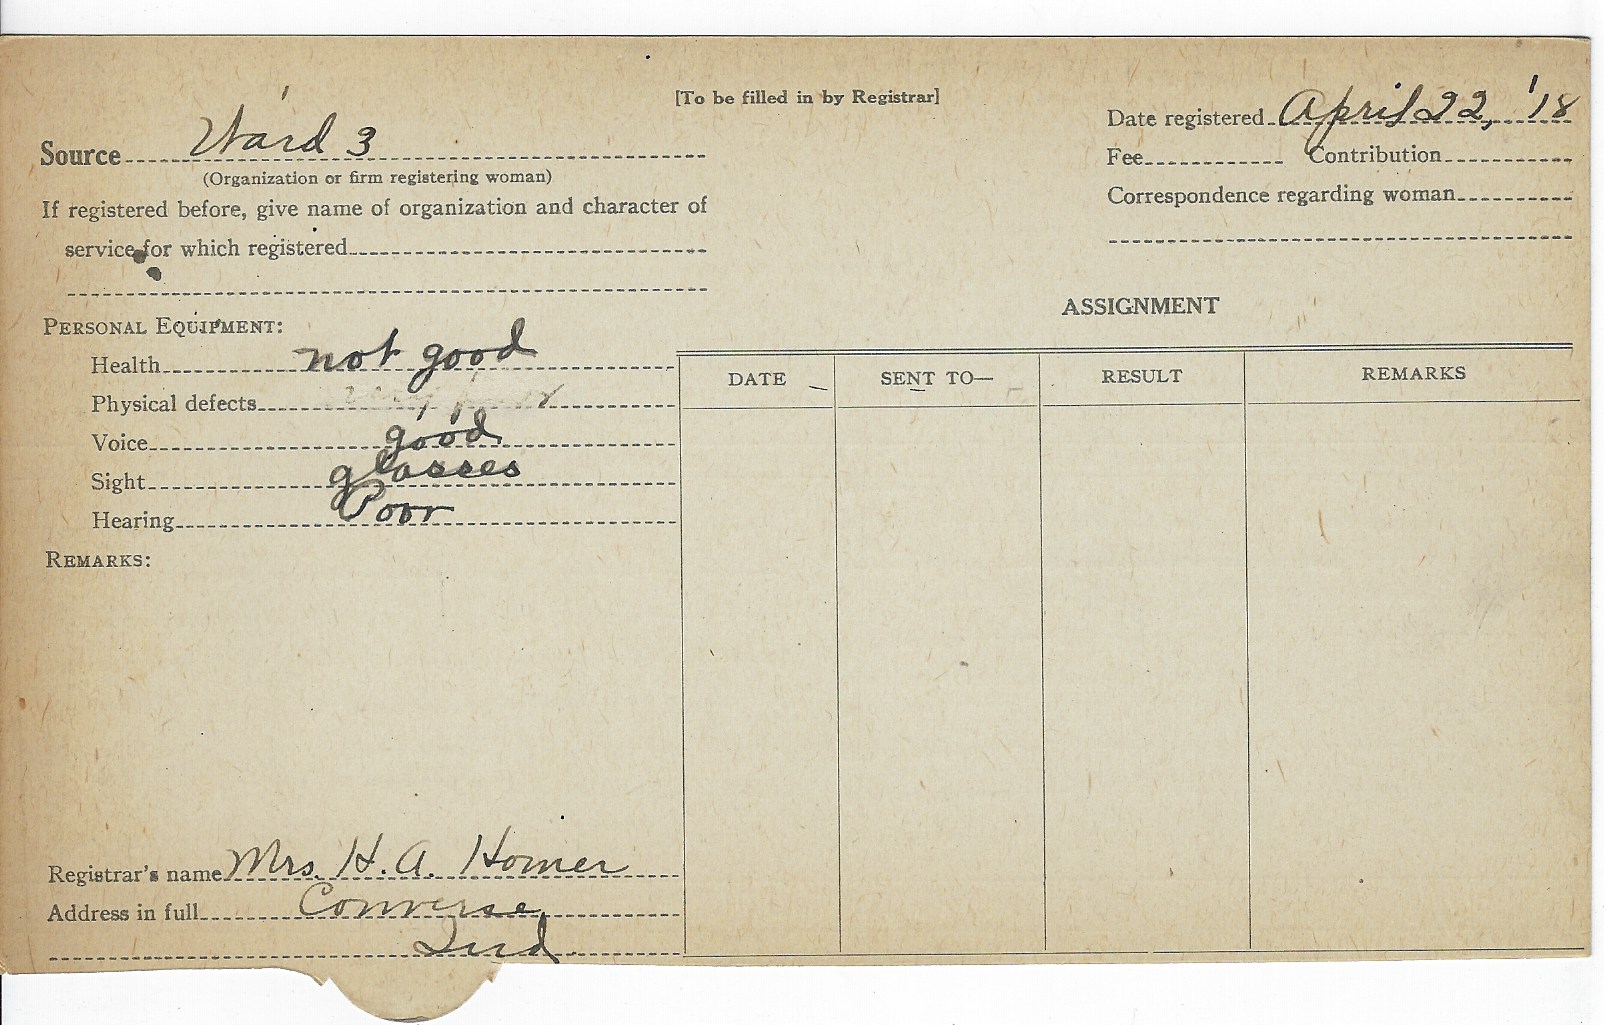 [To be filled in by Registrar]
Source Ward 3
(Organization or firm registering woman)
If registered before, give name of organization and character of
service for which registered
Date registered April 22, '18
Fee Contribution
Correspondence regarding woman
PERSONAL EQUIPMENT:
Health not good
Physical defects
Voice good
Sight glasses
Hearing Poor
REMARKS:
Registrar's name Mrs. H. A. Homer
Address in full Converse,
Ind.
ASSIGNMENT
DATE SENT TO— RESULT REMARKS